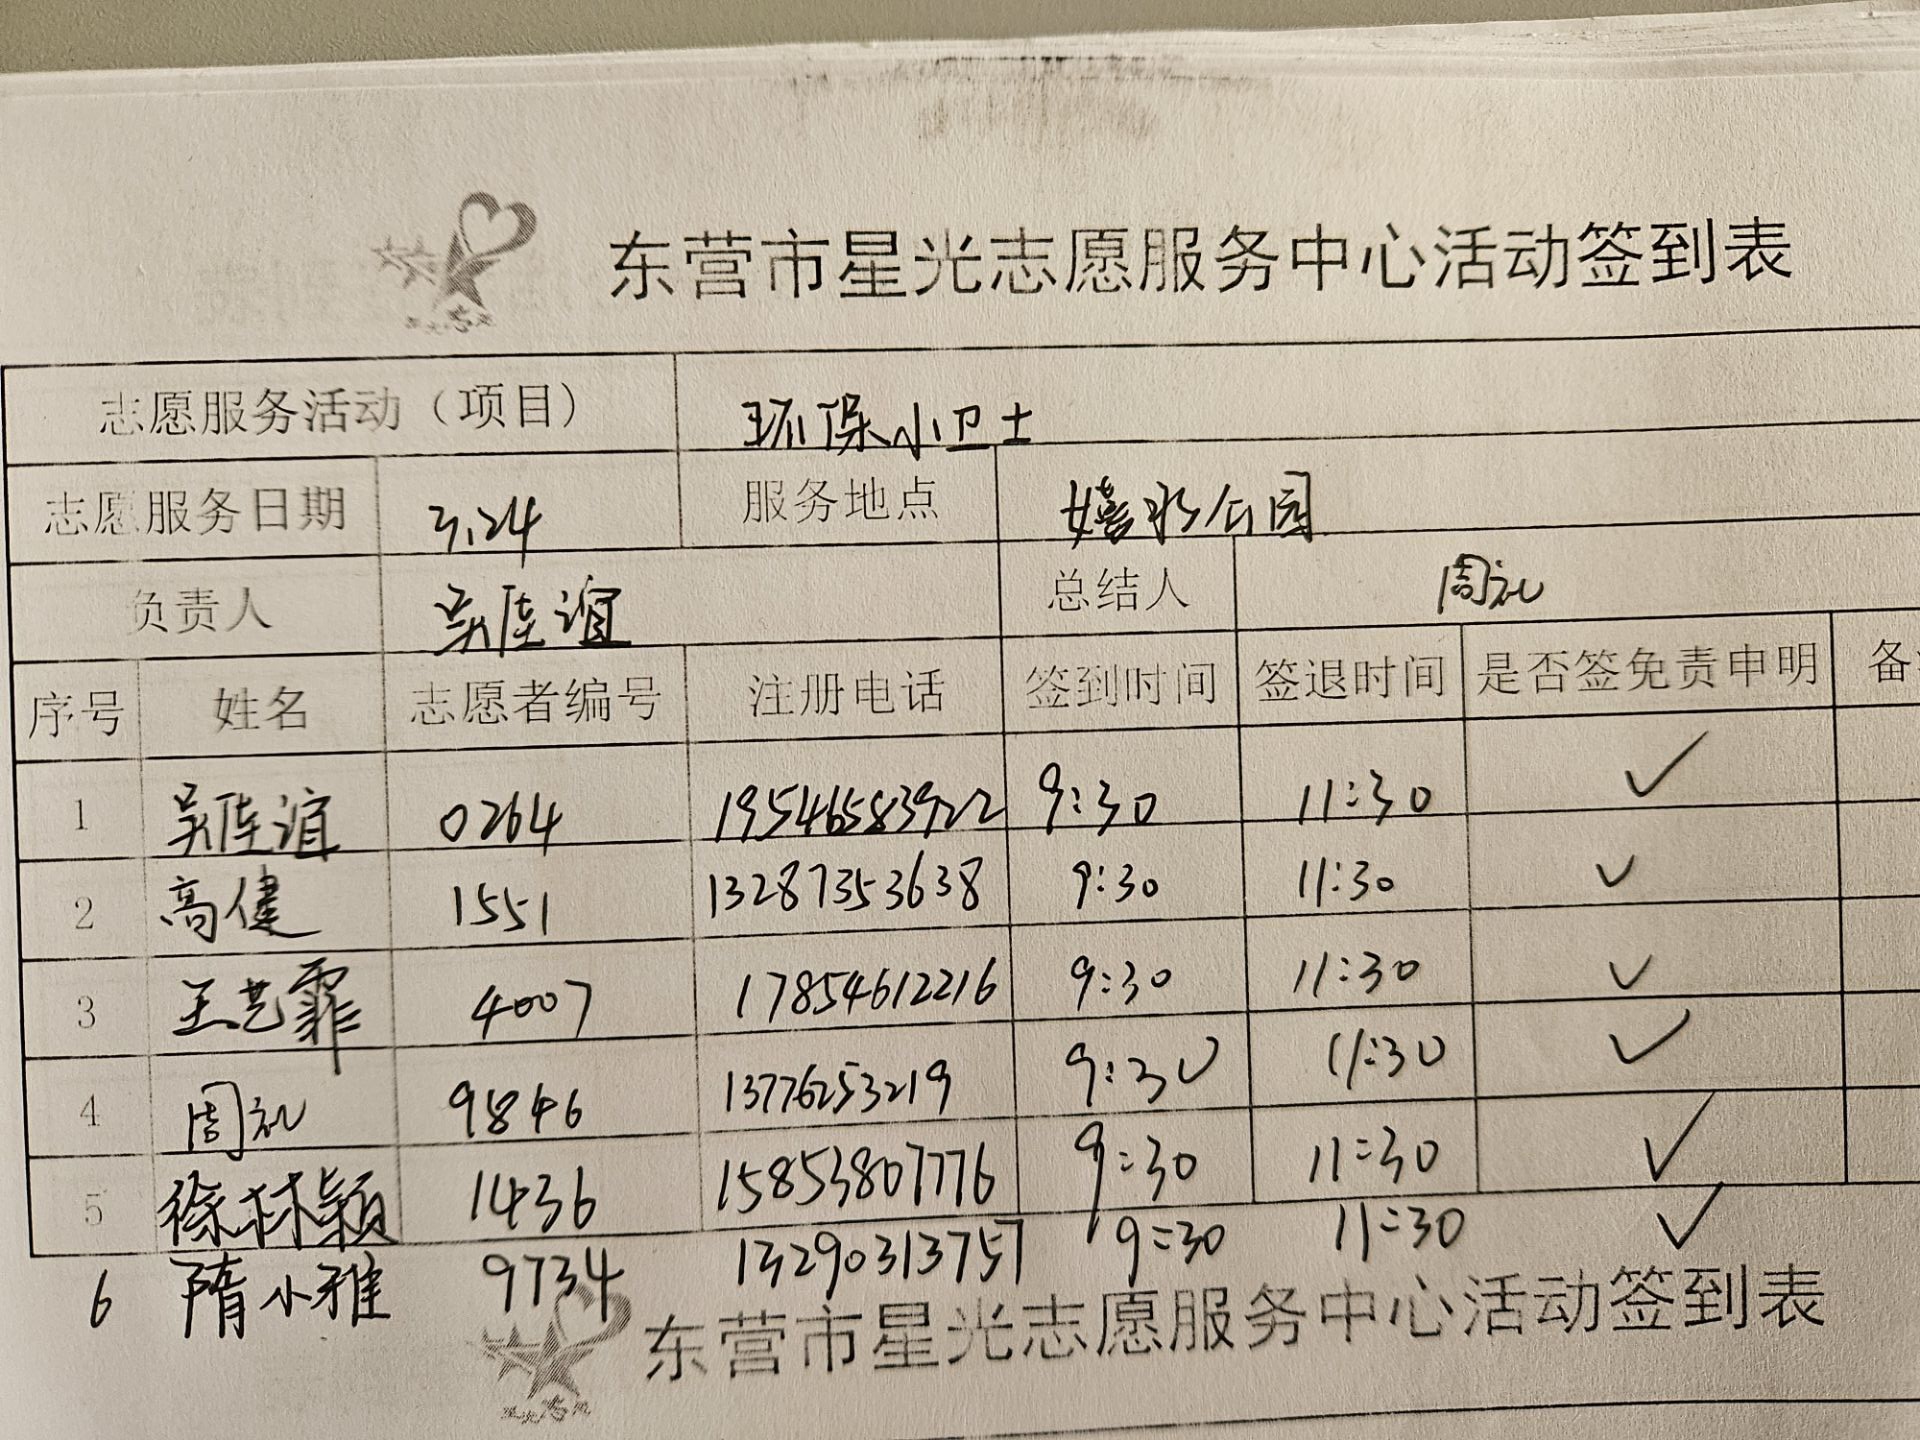 东营市星光志愿服务中心活动签到表
志愿服务活动（项目） 环保小卫士
志愿服务日期 3.24 服务地点 嬉水公园
负责人 吴佳谊 总结人 周礼
序号 姓名 志愿者编号 注册电话 签到时间 签退时间 是否签免责申明 备
1 吴佳谊 0264 19546583922 9:30 11:30 ✓
2 高健 1551 13287353638 9:30 11:30 ✓
3 王艺霏 4007 17854612216 9:30 11:30 ✓
4 周礼 9846 13776253219 9:30 11:30 ✓
5 徐林颖 1436 15853807776 9:30 11:30 ✓
6 隋小雅 9734 13290313757 9:30 11:30 ✓
东营市星光志愿服务中心活动签到表